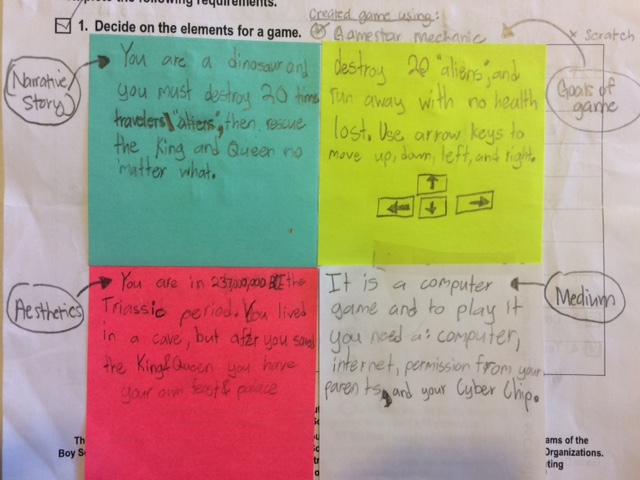 plete the following requirements.
1. Decide on the elements for a game.
Created game using:
Gamestar mechanic
x Scratch
Narrative
Story
You are a dinosaur and
you must destroy 20 time
travelers\"aliens", then rescue
the King and Queen no
matter what.
Goals of
game
destroy 20 "aliens", and
run away with no health
lost. Use arrow keys to
move up, down, left, and right.
Aesthetics
You are in 237,000,000 the
Triassic period. You lived
in a cave, but after you saved
the King & Queen you have
your own feast & palace
Medium
It is a computer
game and to play it
you need a: computer,
internet, permission from your
parents, and your Cyber Chip.
Th
Boy Sc
ams of the
Organizations.
ting